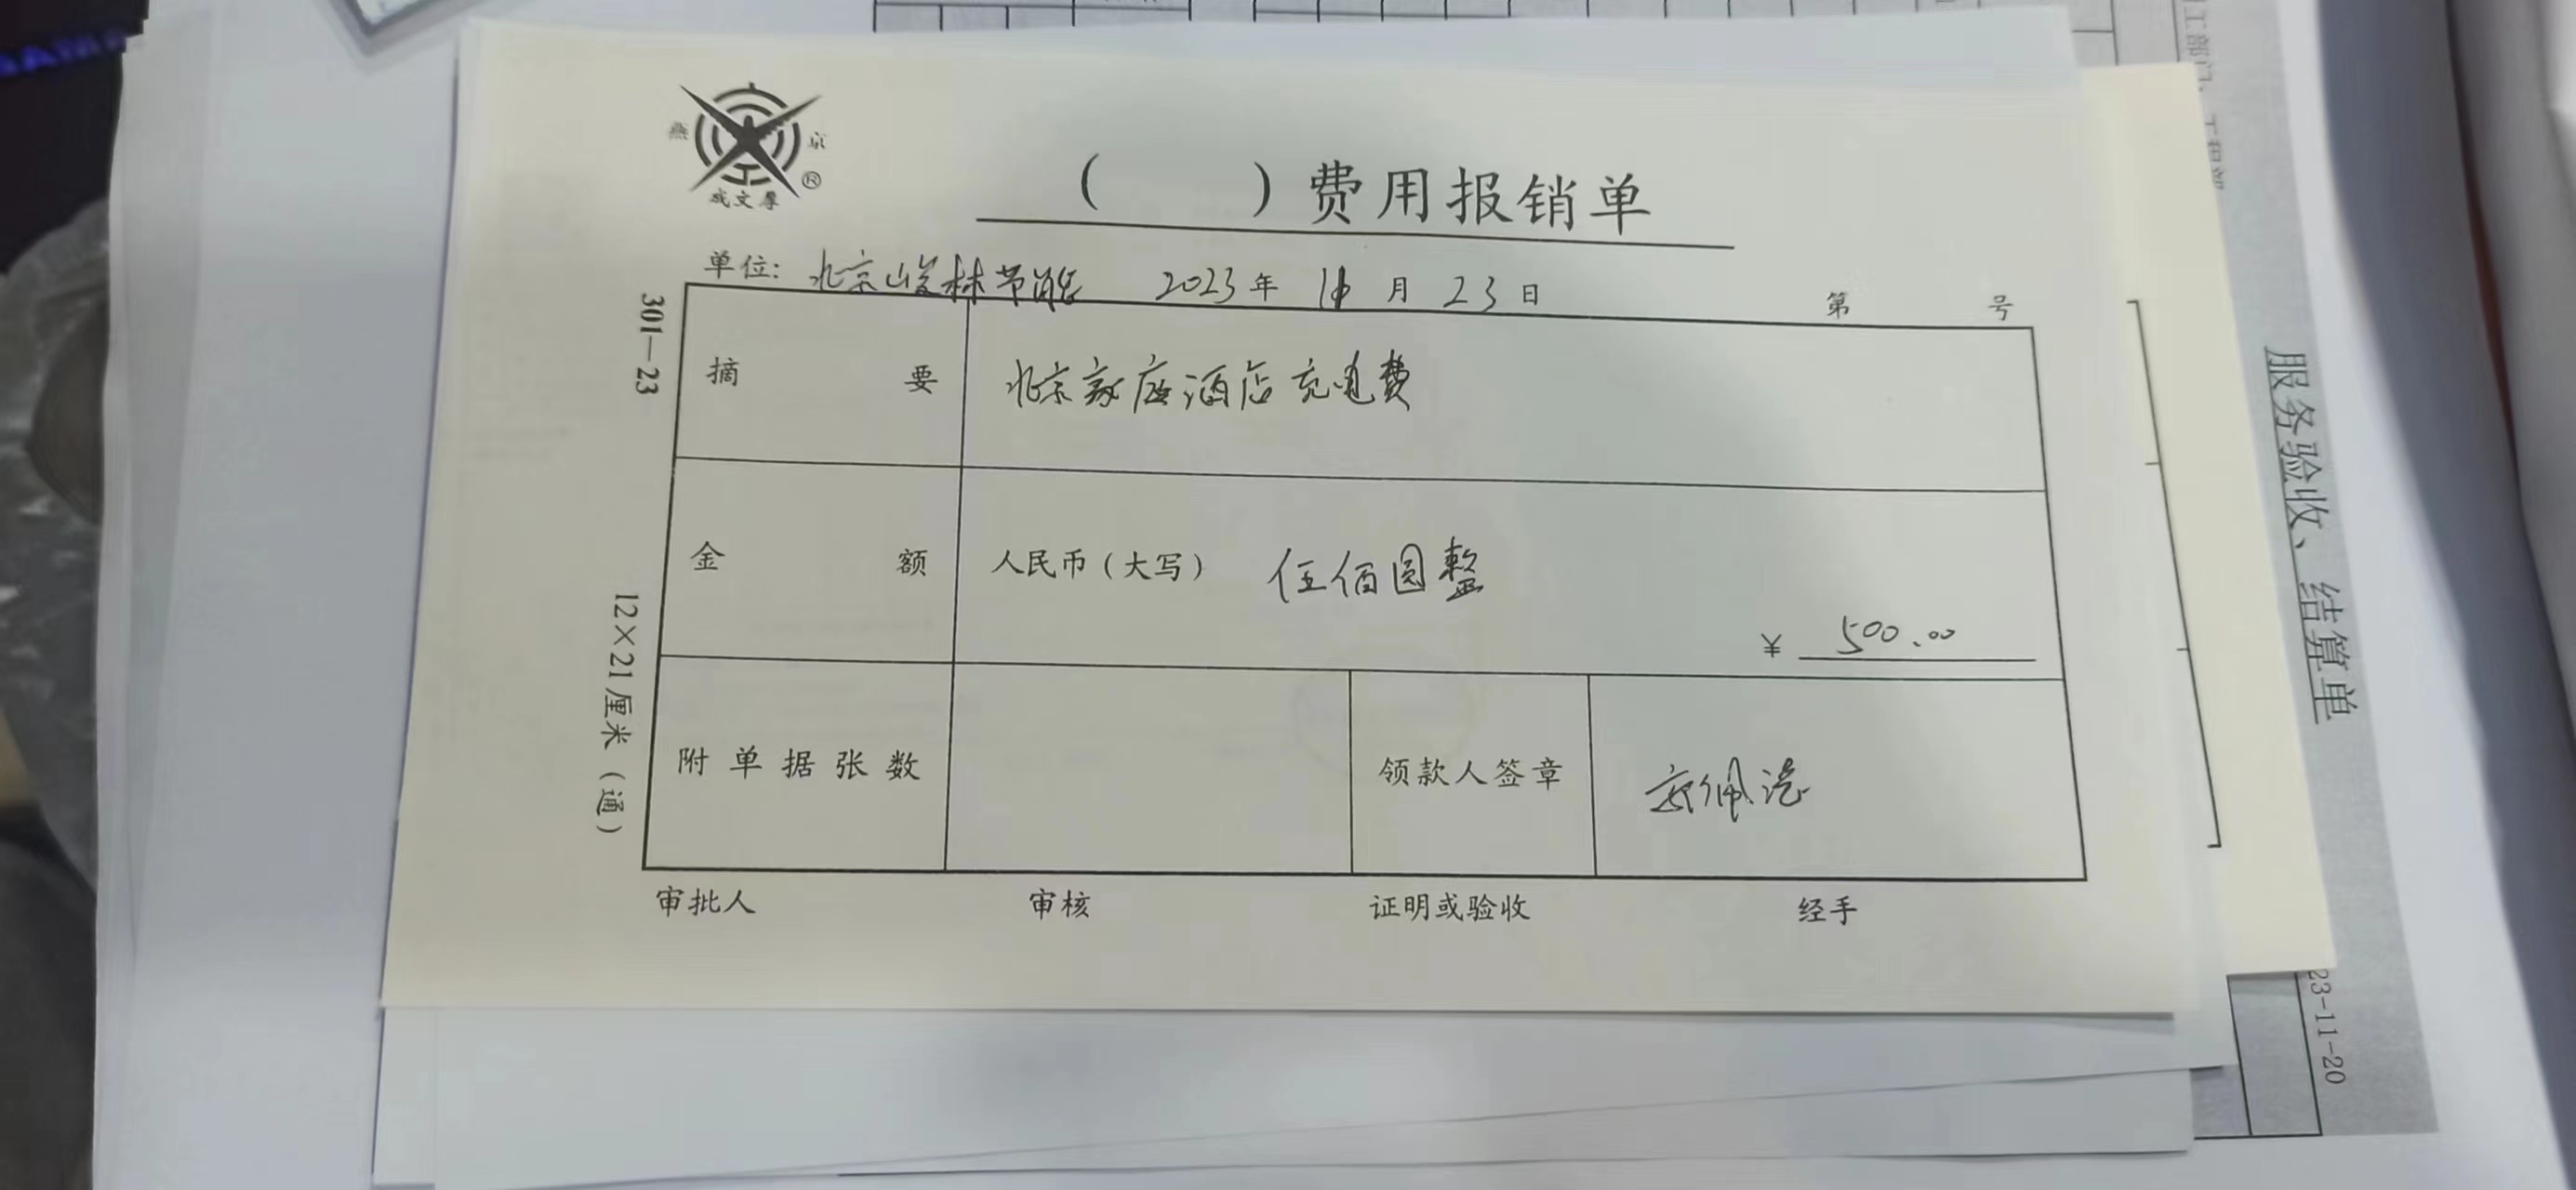 燕 京
成文厚 ®
( ) 费用报销单
单位: 北京峻林节能 2023年 11月 23日 第 号
301—23
12×21厘米(通)
摘 要 北京家庭酒店充电费
金 额 人民币(大写) 伍佰圆整
¥ 500.00
附单据张数 领款人签章
审批人 审核 证明或验收 经手
服务验收、结算单
23-11-20